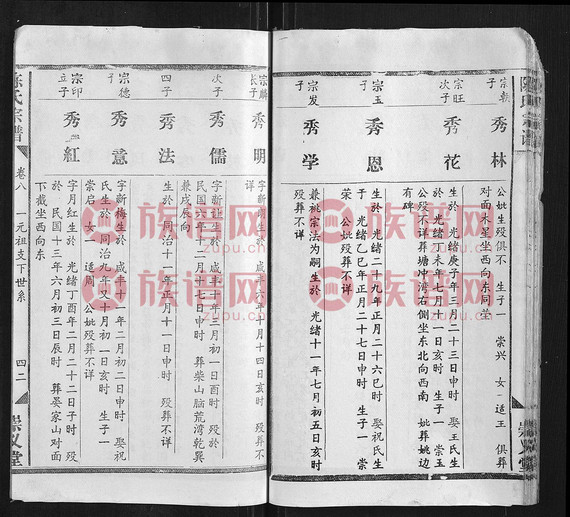 宗朝
子
秀林
公妣生殁俱不 生子一 崇兴 女一适王 俱葬
对面木星坐西向东同茔
宗旺
次子
秀花
生於 光绪庚子年三月二十三日申时 娶王氏生
於 光绪丁未年七月二十一日亥时 生子一 崇玉
公殁不详葬塘冲湾右侧坐东北向西南 妣葬姚边
有碑
宗玉
子
秀恩
生於 光绪二十九年正月二十六巳时 娶祝氏生
于 光绪乙巳年正月二十七日申时 生子一 崇
荣 公妣殁葬不详
宗发
子
秀学
兼祧宗法为嗣生於 光绪十一年七月初五日亥时
殁葬不详
宗麟
长子
秀明
字新朝生於 咸丰六年十月十四日亥时 殁葬不
详
次子
秀儒
字新让生於 咸丰
民国二年十二月初七日申时 葬柴山脑荒湾乾巽
兼戌辰向
四子
秀法
生於 同治十一年正月十一日申时 殁葬不详
宗德
子
秀意
字新梅生於 咸丰十一年二月初二日申时 娶祝
氏生於 同治九年又十月初一日亥时 生子一
崇启 女一 适周 公妣殁葬不详
宗印
立子
秀红
字月红生於 光绪丁酉年二月二十二日子时 殁
於 民国十三年六月初三日辰时 葬晏家山对面
下截坐西向东
陈氏宗谱
卷八 一元祖支下世系 四二
崇义堂
族谱网
zupu.cn
族谱网
zupu.cn
族谱网
zupu.cn
族谱网
zupu.cn